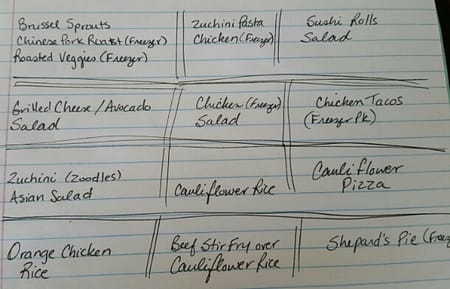 Brussel Sprouts
Chinese Pork Roast (Freezer)
Roasted Veggies (Freezer)
Zuchini Pasta
Chicken (Freezer)
Sushi Rolls
Salad
Grilled Cheese / Avocado
Salad
Chicken (Freezer)
Salad
Chicken Tacos
(Freezer Pk)
Zuchini (Zoodles)
Asian Salad
Cauliflower Rice
Cauliflower
Pizza
Orange Chicken
Rice
Beef Stir Fry over
Cauliflower Rice
Shepard's Pie (Free